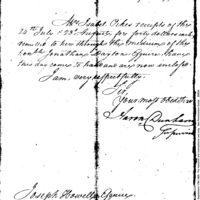 Mrs Isabel Oakes receipts of the
24th July & 23d August for forty dollars each
remitted to her through the medium of the
honble Jonathan Dayton Esquire, have
this day come to hand and are now inclosed.
I am very respectfully
Sir,
Your most obed. Serv.
Aaron Dunham
Joseph Howell Esquire